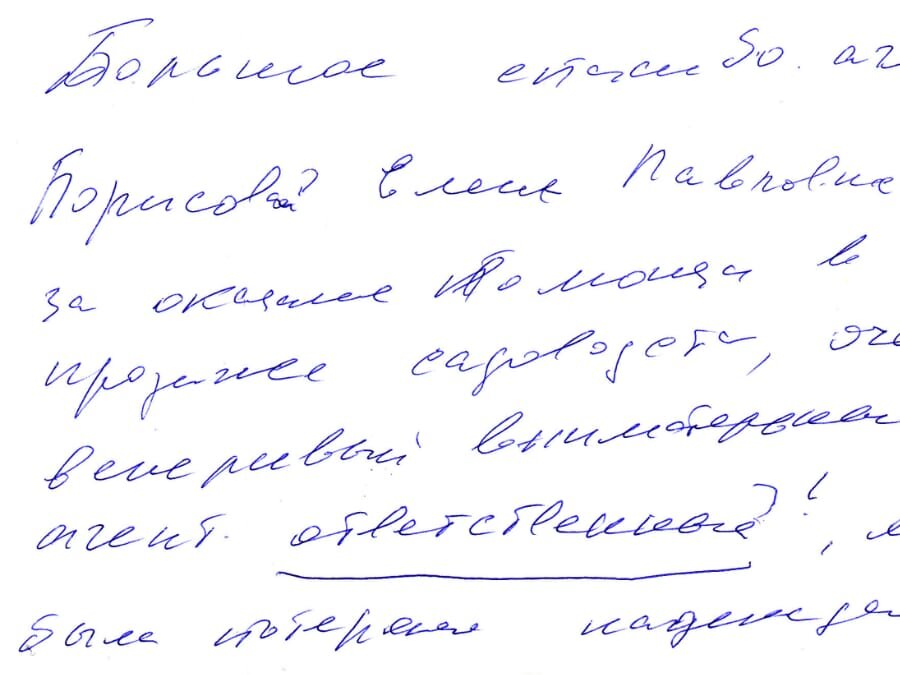 Большое спасибо. аг
Борисовой Елене Павловне
за оказание помощи в
продаже садоводства, оче
вежливый внимательный
агент. ответственный! ,
была потеряна надежда